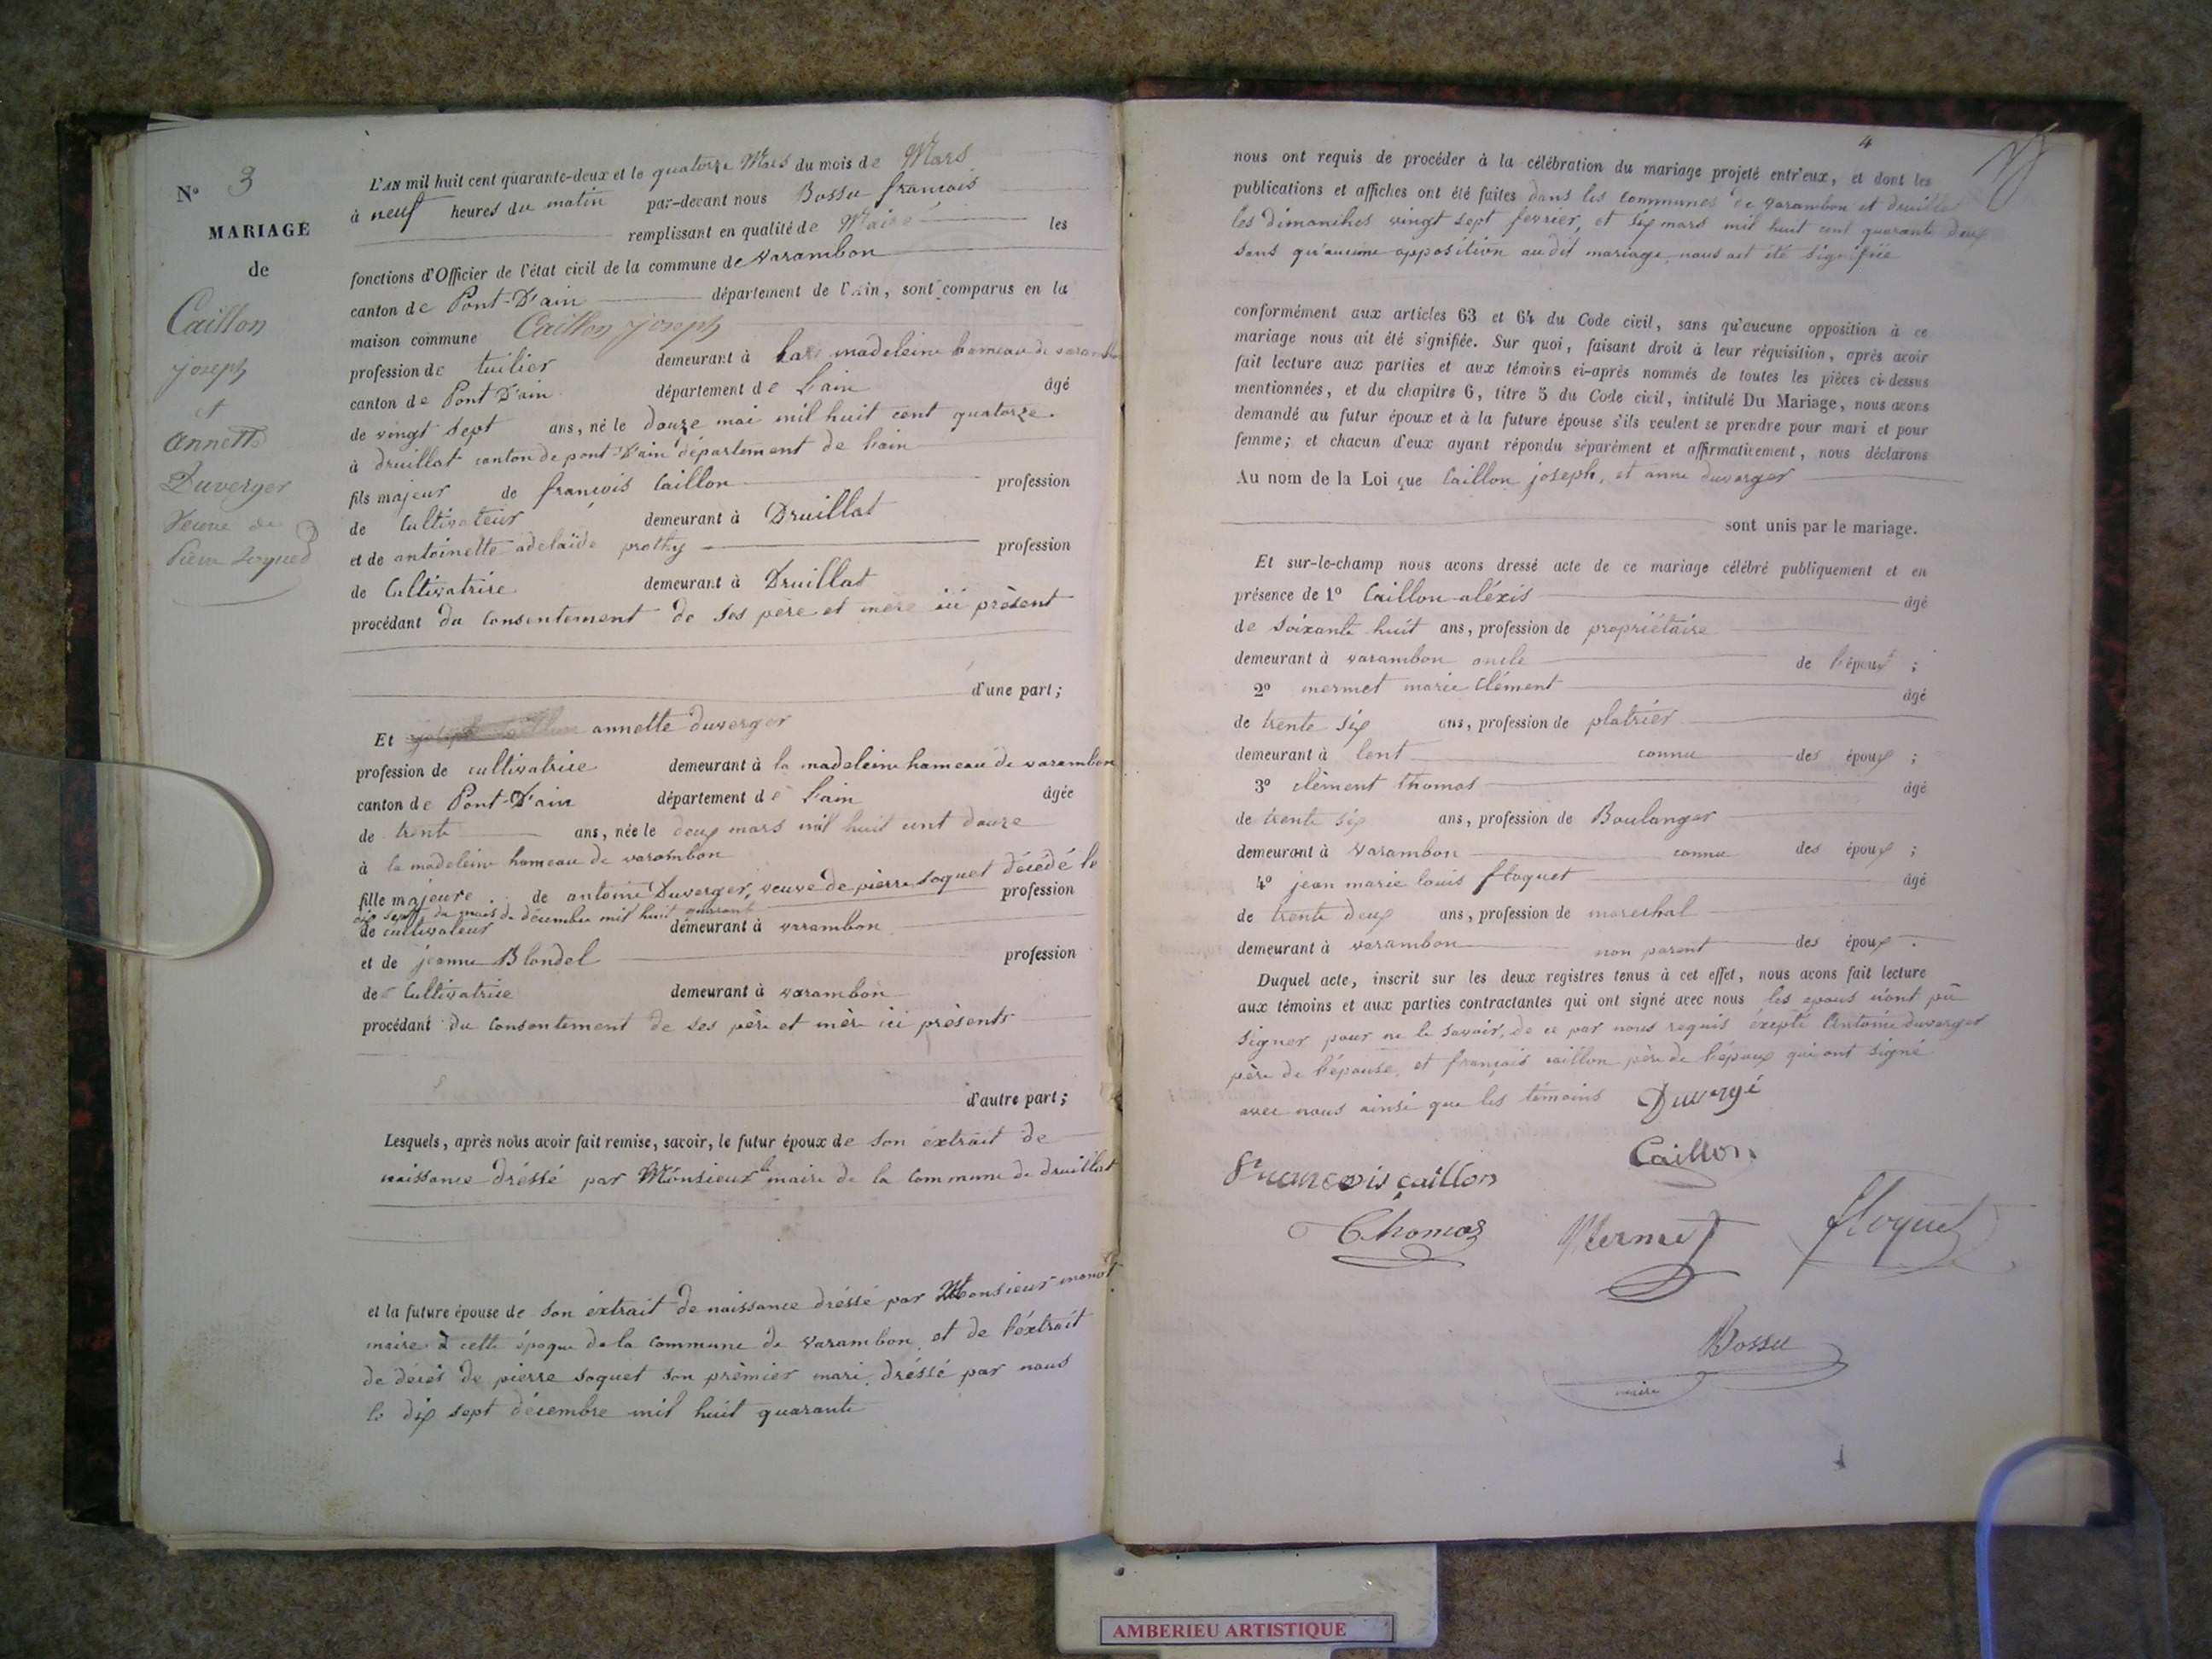 N° 3
MARIAGE
de
Caillon
joseph
et
annette
Duverger
Veuve de
Pierre Soquet
L'AN mil huit cent quarante-deux et le quatorze Mars du mois de Mars
à neuf heures du matin par-devant nous Bossu françois
remplissant en qualité de Maire les
fonctions d'Officier de l'état civil de la commune de varambon
canton de Pont-D'ain département de l'Ain, sont comparus en la
maison commune Caillon joseph
profession de tuilier demeurant à la madeleine hameau de varambon
canton de Pont D'ain département de l'ain âgé
de vingt sept ans, né le douze mai mil huit cent quatorze
à druillat canton de pont D'ain département de l'ain
fils majeur de françois Caillon profession
de Cultivateur demeurant à Druillat
et de antoinette adelaïde prothy profession
de Cultivatrice demeurant à Druillat
procédant du consentement de ses père et mère ici présent
d'une part;
Et annette duverger
profession de cultivatrice demeurant à la madeleine hameau de varambon
canton de Pont-D'ain département de l'ain âgée
de trente ans, née le deux mars mil huit cent douze
à la madeleine hameau de varambon
fille majeure de antoine Duverger, veuve de pierre soquet décédé le profession
dix sept du mois de décembre mil huit quarante
de cultivateur demeurant à varambon
et de jeanne Blondel profession
de Cultivatrice demeurant à varambon
procédant du consentement de ses père et mère ici présents
d'autre part;
Lesquels, après nous avoir fait remise, savoir, le futur époux de son extrait de
naissance dréssé par Monsieur le maire de la commune de druillat
et la future épouse de son éxtrait de naissance dréssé par Monsieur monot
maire à cette époque de la commune de varambon, et de l'éxtrait
de décès de pierre soquet son prèmier mari, dréssé par nous
le dix sept décembre mil huit quarante
4
nous ont requis de procéder à la célébration du mariage projeté entr'eux, et dont les
publications et affiches ont été faites dans les communes de varambon et druillat
les dimanches vingt sept fevrier, et six mars mil huit cent quarante deux
sans qu'aucune opposition audit mariage nous ait été signifiée
conformément aux articles 63 et 64 du Code civil, sans qu'aucune opposition à ce
mariage nous ait été signifiée. Sur quoi, faisant droit à leur réquisition, après avoir
fait lecture aux parties et aux témoins ci-après nommés de toutes les pièces ci-dessus
mentionnées, et du chapitre 6, titre 5 du Code civil, intitulé Du Mariage, nous avons
demandé au futur époux et à la future épouse s'ils veulent se prendre pour mari et pour
femme; et chacun d'eux ayant répondu séparément et affirmativement, nous déclarons
Au nom de la Loi que Caillon joseph, et anne duverger
sont unis par le mariage.
Et sur-le-champ nous avons dressé acte de ce mariage célébré publiquement et en
présence de 1° Caillon aléxis âgé
de soixante huit ans, profession de propriétaire
demeurant à varambon oncle de l'époux ;
2° mermet marie clément âgé
de trente six ans, profession de platrier
demeurant à lent connu des époux ;
3° clèment thomas âgé
de trente six ans, profession de Boulanger
demeurant à Varambon connu des époux ;
4° jean marie louis floquet âgé
de trente deux ans, profession de marechal
demeurant à varambon non parent des époux .
Duquel acte, inscrit sur les deux registres tenus à cet effet, nous avons fait lecture
aux témoins et aux parties contractantes qui ont signé avec nous les epoux n'ont pû
signer pour ne le savoir, de ce par nous requis éxepté Antoine duverger
père de l'épouse, et françois caillon père de l'époux qui ont signé
avec nous ainsi que les témoins Duvergé
Caillon
françois caillon
Thomas Mermet floquet
Bossu
maire
AMBERIEU ARTISTIQUE